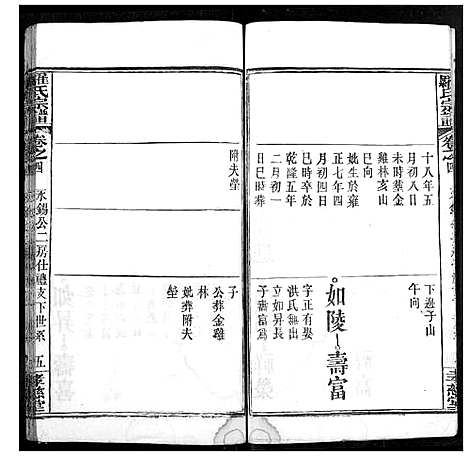 羅氏宗譜
卷之四
下邊子山
午向
十八年五
月初八日
未時葬金
雞林亥山
巳向
妣生於雍
正七年四
月初四日
巳時卒於
乾隆五年
二月初一
日巳時葬
附夫塋
如陵
壽富
字正有娶
洪氏無出
立如昇長
子壽富為
子
公葬金雞
林
妣葬附夫
塋
羅氏宗譜
卷之四
永錫公二房仕禮支下世系
五
孝慈堂